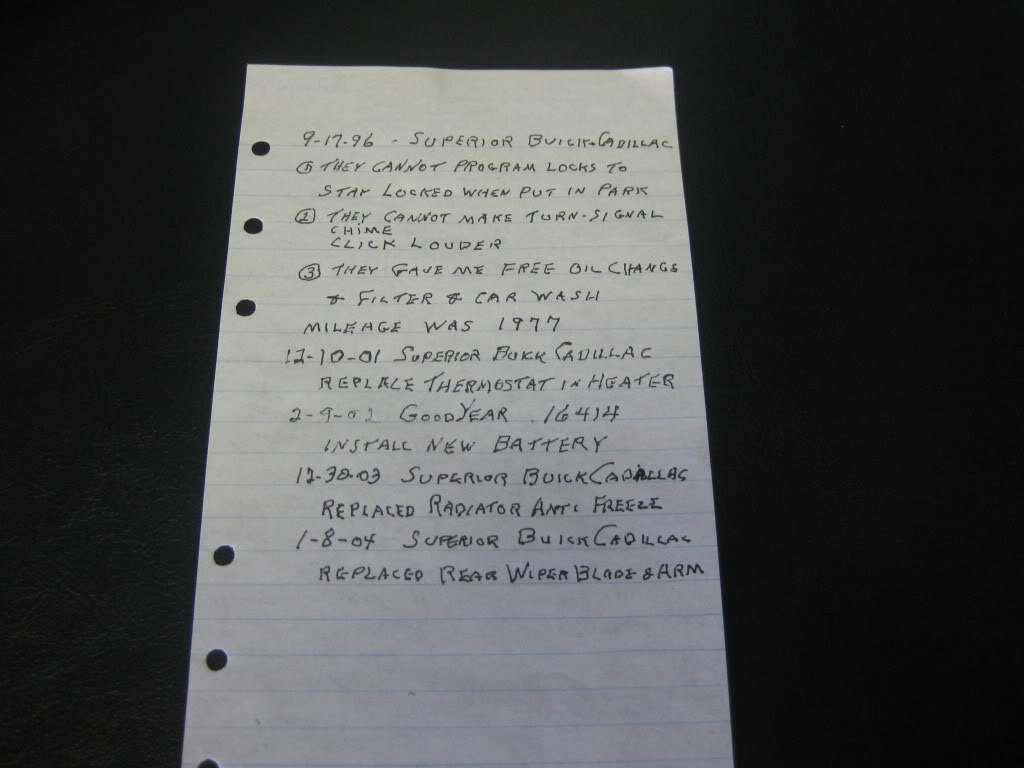 9-17-96 - SUPERIOR BUICK-CADILLAC
① THEY CANNOT PROGRAM LOCKS TO
STAY LOCKED WHEN PUT IN PARK
② THEY CANNOT MAKE TURN-SIGNAL
CHIME
CLICK LOUDER
③ THEY GAVE ME FREE OIL CHANGE
& FILTER & CAR WASH
MILEAGE WAS 1977
12-10-01 SUPERIOR BUICK CADILLAC
REPLACE THERMOSTAT IN HEATER
2-9-02 GOODYEAR 16414
INSTALL NEW BATTERY
12-30-03 SUPERIOR BUICK CADILLAC
REPLACED RADIATOR ANTI FREEZE
1-8-04 SUPERIOR BUICK CADILLAC
REPLACED REAR WIPER BLADE & ARM